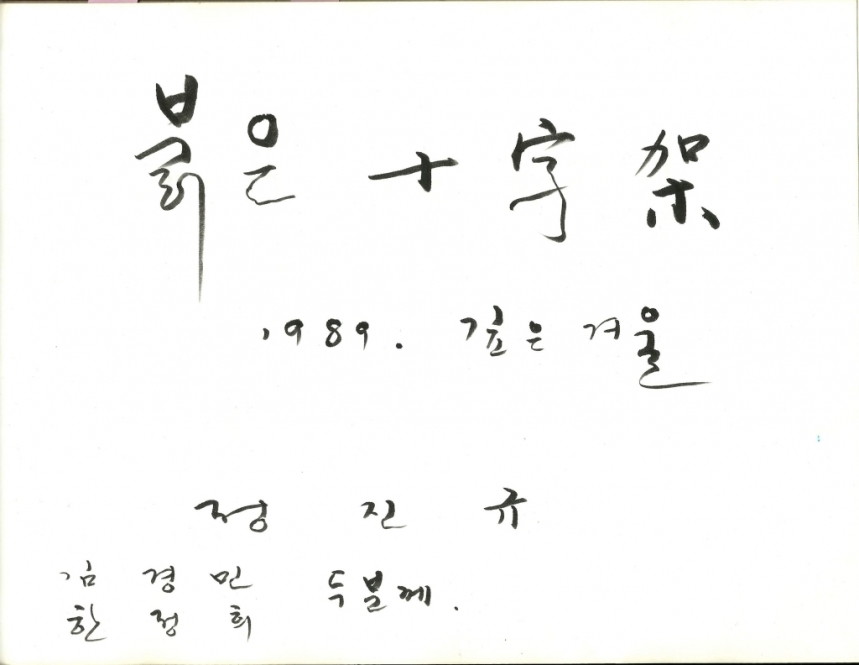 붉은 十字架
1989. 깊은 겨울
정 진 규
김 경 민
한 정 희 두 분께.